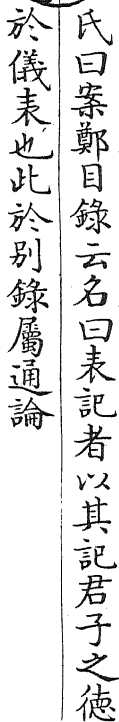 氏曰案鄭目録云名曰表記者以其記君子之徳
於儀表也此於别録屬通論